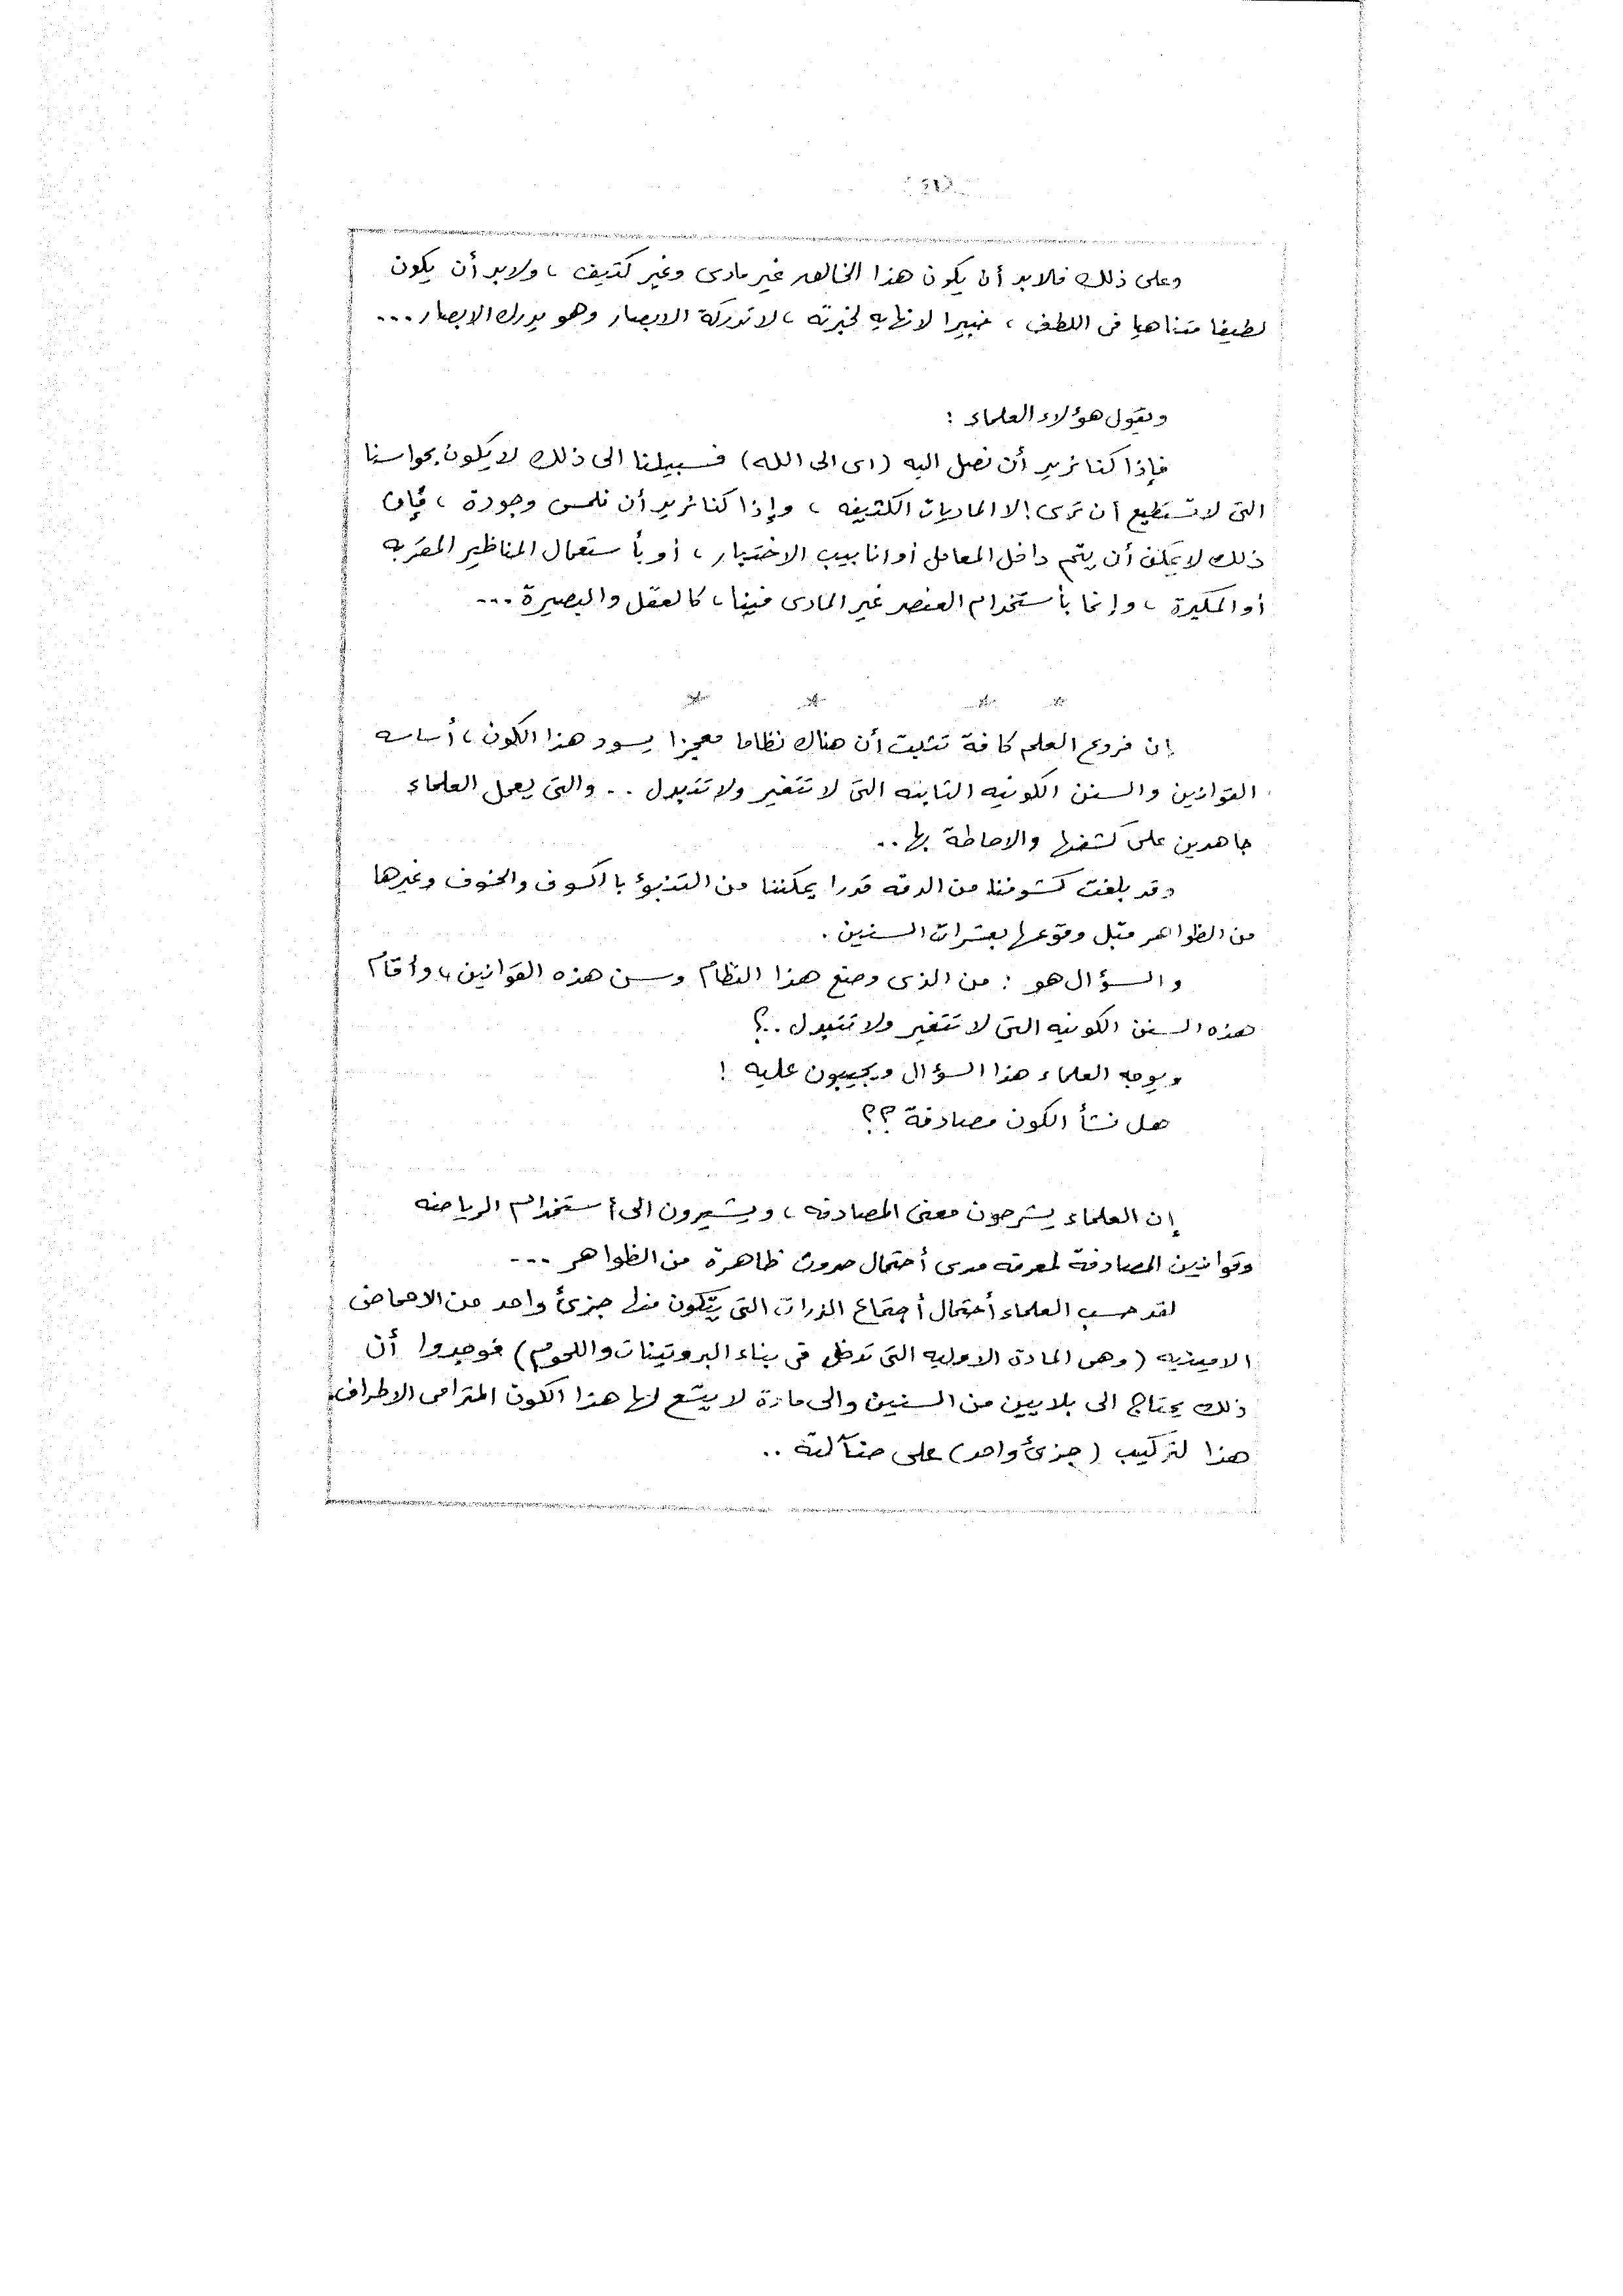 وعلى ذلك فلابد أن يكون هذا الخالق غير مادى وغير كثيف ، ولابد أن يكون
لطيفا متناهيا فى اللطف ، خبيرا لا نهاية لخبرته ، لا تدركة الابصار وهو يدرك الابصار ...
ويقول هؤلاء العلماء :
فإذا كنا نريد أن نصل اليه (اى الى الله) فسبيلنا الى ذلك لا يكون بحواسنا
التى لا تستطيع أن ترى إلا الماديات الكثيفه ، وإذا كنا نريد أن نلمس وجودة ، فإن
ذلك لا يمكن أن يتم داخل المعامل أو انابيب الاختبار ، أو بأستعمال المناظير المقربه
أو المكبرة ، وإنما بأستخدام العنصر غير المادى فينا ، كالعقل والبصيرة ...
* * * *
إن فروع العلم كافة تثبت أن هناك نظاما معجزا يسود هذا الكون ، أساسه
القوانين والسنن الكونيه الثابته التى لا تتغير ولا تتبدل .. والتى يعمل العلماء
جاهدين على كشفها والاحاطة بها ..
وقد بلغت كشوفنا من الدقه قدرا يمكننا من التنبؤ بالكسوف والخسوف وغيرها
من الظواهر قبل وقوعها بعشرات السنين .
والسؤال هو : من الذى وضع هذا النظام وسن هذه القوانين ، وأقام
هذه السنن الكونيه التى لا تتغير ولا تتبدل ..؟
ويوجه العلماء هذا السؤال ويجيبون عليه !
هل نشأ الكون مصادفة ؟؟
إن العلماء يشرحون معنى المصادفه ، ويشيرون الى أستخدام الرياضه
وقوانين المصادفة لمعرفه مدى أحتمال حدوث ظاهرة من الظواهر ...
لقد حسب العلماء أحتمال أجتماع الذرات التى يتكون منها جزئ واحد من الاحماض
الامينيه (وهى المادة الاوليه التى تدخل فى بناء البروتينات واللحوم) فوجدوا أن
ذلك يحتاج الى بلايين من السنين والى مادة لا يتسع لها هذا الكون المترامى الاطراف
هذا لتركيب (جزئ واحد) على ضآلته ..